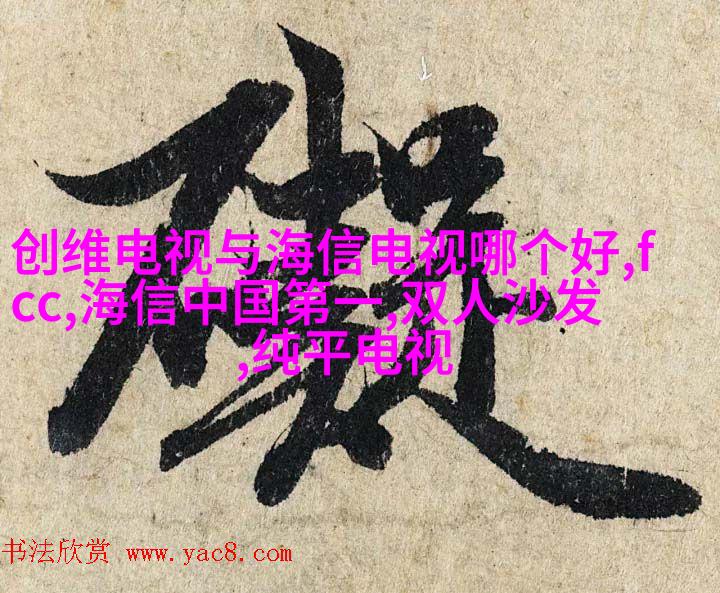 礙
创维电视与海信电视哪个好,f
cc,海信中国第一,双人沙发
,纯平电视
书法欣赏 www.yac8.com